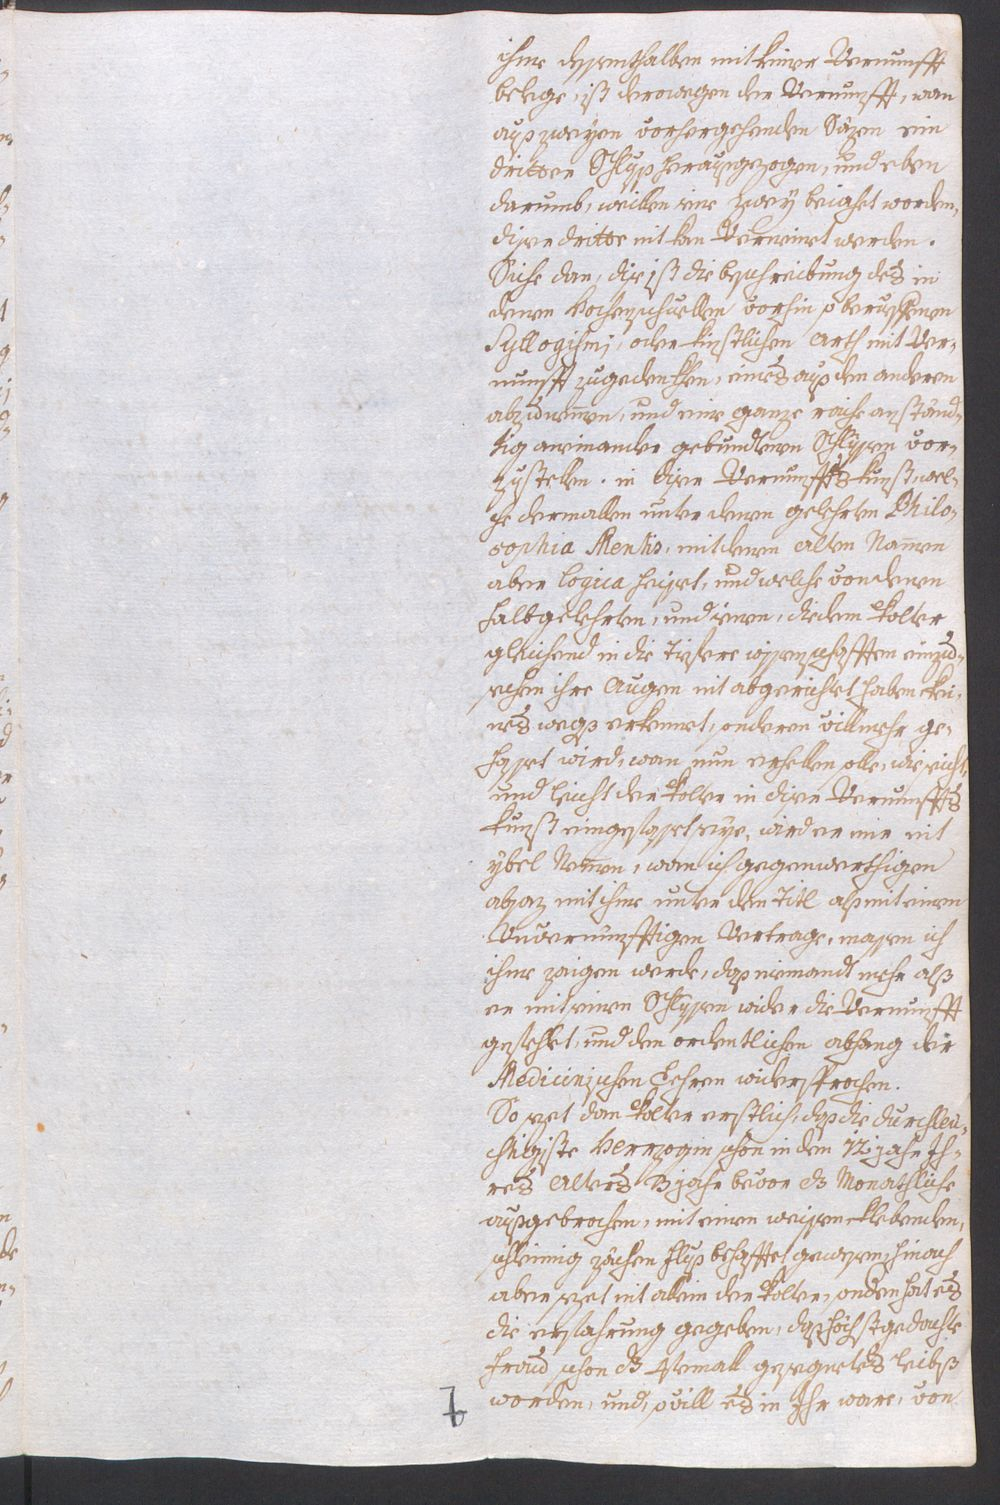 ihme dessenthalben mit keiner Vernunfft
belege, ist derowegen der Vernunfft, wan
auß zweyen vorhergehenden Säzen ein
dritter Schluß heraußgezogen, und eben
darumb, weillen eine zwey beiahet worden,
dise dritte nit kan Verneinet werden.
Siehe dan, dise ist die beschreibung des in
denen Hochenschuellen vorhin so beruehmen
Syllogismj, oder kinstlichen Arth mit Ver-
nunfft zugedenkhen, eines auß den anderen
abzunemmen, und eine ganze reihe anständ-
tig aneinander gebundtenen Schlüssen vor-
zustellen. in diser Vernunffts kunst, wel-
che dermallen unter denen gelehrten Philo-
sophia Mentis, mit deren alten Nammen
aber Logica heisset, und welche von denen
halbgelehrten, und ienen, die dem Kolter
gleichend in die tiefere wissenschafften einzu-
sehen ihre Augen nit abgerichtet haben kei-
nes wegs erkennet, sonderen villmehr ge-
hasset wird, wan nun erhellen solle, wie seicht,
und leicht der Kolter in diser Vernunffts
kunst eingefasset seye, wird er mir nit
ybel Nemmen, wan ich gegenwerthigen
absaz mit ihme unter dem Titl alß mit einem
Unvernünfftigen Vertrage, massen ich
ihme zaigen werde, daß niemandt mehr alß
er mit seinen Schlüssen wider die Vernunfft
gefehlet, und den ordentlichen abhang der
Medicinischen Lehren widersprochen.
So sezet dan Kolter erstlich, daß die durchleu-
chtigiste Herzogin schon in dem 12 jahr Ih-
res Alters 3 jahr bevor das Monathliche
außgebrochen, mit einen weissen klebenden,
schleimig zächen fluß behafftet gewesen, hinach
aber sezet nit allein der Kolter, sondern hat es
die erfahrung gegeben, daß höchstgedachte
Fraud schon das 4temall gesegnetes leibß
worden, und, so vill es in Ihr ware, von
7